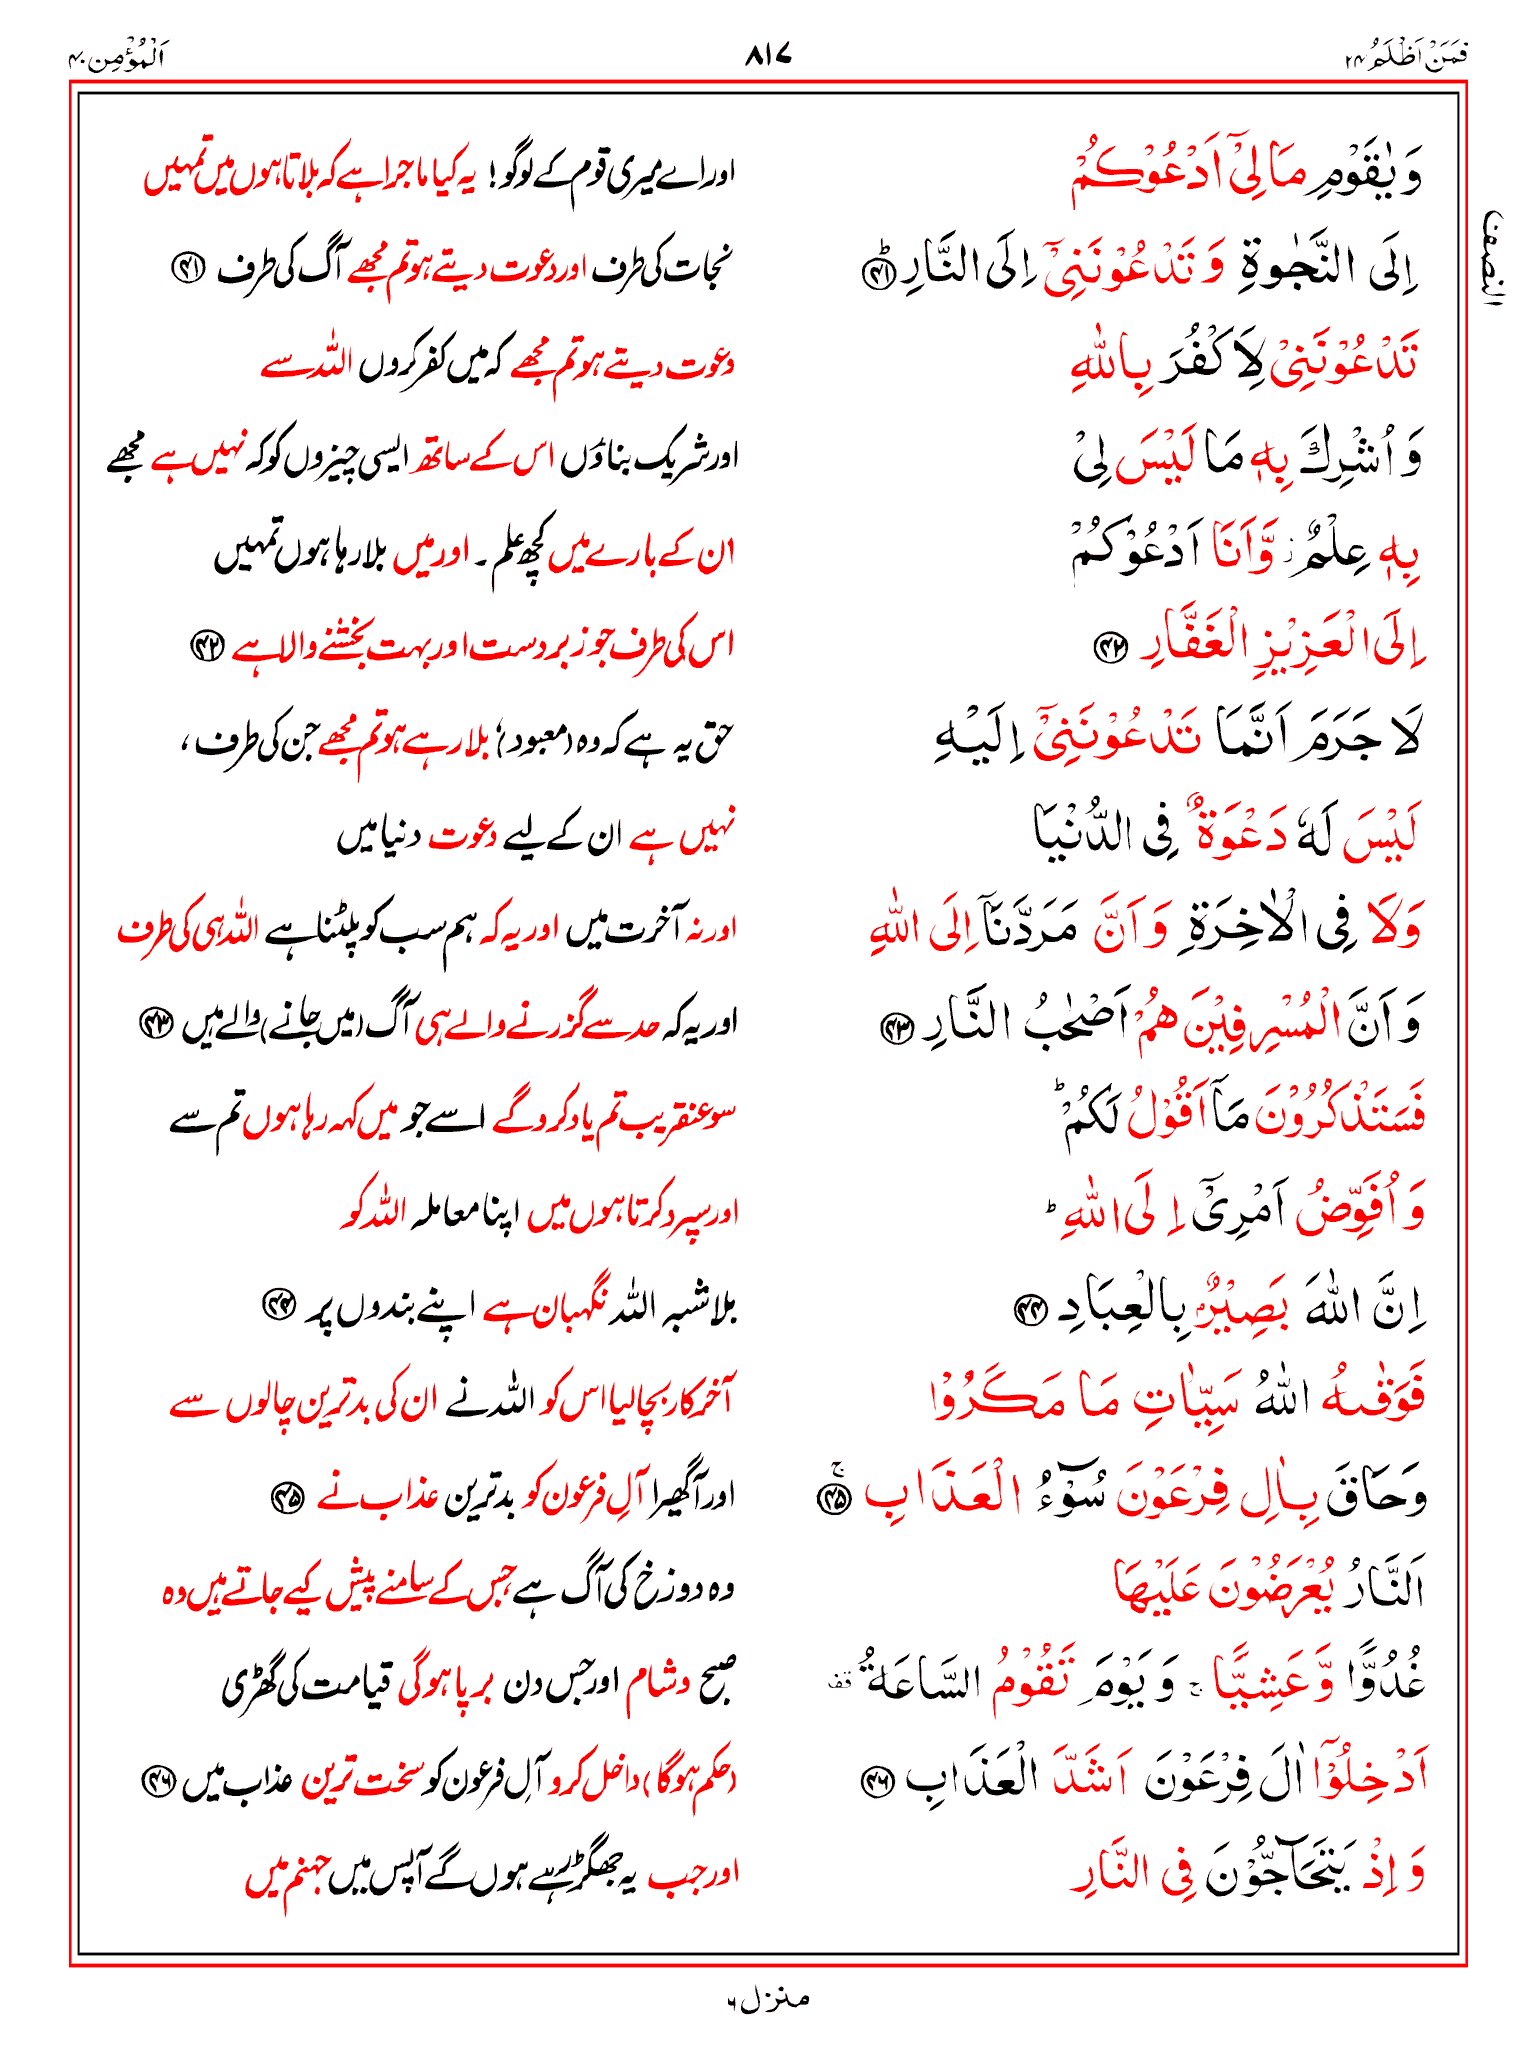 فَمَنْ اَظْلَمُ ۲۴ ۸۱۷ اَلْمُؤْمِن ۴۰
وَ يٰقَوْمِ مَا لِىْٓ اَدْعُوْكُمْ اور اے میری قوم کے لوگو! یہ کیا ماجرا ہے کہ بلاتا ہوں میں تمہیں
النصف
اِلَى النَّجٰوةِ وَ تَدْعُوْنَنِىْٓ اِلَى النَّارِ ؕ ﴿۴۱﴾ نجات کی طرف اور دعوت دیتے ہو تم مجھے آگ کی طرف ﴿۴۱﴾
تَدْعُوْنَنِىْ لِاَكْفُرَ بِاللّٰهِ دعوت دیتے ہو تم مجھے کہ میں کفر کروں اللہ سے
وَ اُشْرِكَ بِهٖ مَا لَيْسَ لِىْ اور شریک بناؤں اس کے ساتھ ایسی چیزوں کو کہ نہیں ہے مجھے
بِهٖ عِلْمٌ ز وَّ اَنَا اَدْعُوْكُمْ ان کے بارے میں کچھ علم ۔ اور میں بلا رہا ہوں تمہیں
اِلَى الْعَزِيْزِ الْغَفَّارِ ﴿۴۲﴾ اس کی طرف جو زبردست اور بہت بخشنے والا ہے ﴿۴۲﴾
لَا جَرَمَ اَنَّمَا تَدْعُوْنَنِىْٓ اِلَيْهِ حق یہ ہے کہ وہ (معبود) بلا رہے ہو تم مجھے جن کی طرف ،
لَيْسَ لَهٗ دَعْوَةٌ فِى الدُّنْيَا نہیں ہے ان کے لیے دعوت دنیا میں
وَلَا فِى الْاٰخِرَةِ وَ اَنَّ مَرَدَّنَآ اِلَى اللّٰهِ اور نہ آخرت میں اور یہ کہ ہم سب کو پلٹنا ہے اللہ ہی کی طرف
وَ اَنَّ الْمُسْرِفِيْنَ هُمْ اَصْحٰبُ النَّارِ ﴿۴۳﴾ اور یہ کہ حد سے گزرنے والے ہی آگ (میں جانے) والے ہیں ﴿۴۳﴾
فَسَتَذْكُرُوْنَ مَآ اَقُوْلُ لَكُمْ ؕ سو عنقریب تم یاد کرو گے اسے جو میں کہہ رہا ہوں تم سے
وَ اُفَوِّضُ اَمْرِىْٓ اِلَى اللّٰهِ ؕ اور سپرد کرتا ہوں میں اپنا معاملہ اللہ کو
اِنَّ اللّٰهَ بَصِيْرٌۢ بِالْعِبَادِ ﴿۴۴﴾ بلاشبہ اللہ نگہبان ہے اپنے بندوں پر ﴿۴۴﴾
فَوَقٰىهُ اللّٰهُ سَيِّاٰتِ مَا مَكَرُوْا آخرکار بچا لیا اس کو اللہ نے ان کی بدترین چالوں سے
وَ حَاقَ بِاٰلِ فِرْعَوْنَ سُوْٓءُ الْعَذَابِ ۚ ﴿۴۵﴾ اور آگھیرا آلِ فرعون کو بدترین عذاب نے ﴿۴۵﴾
اَلنَّارُ يُعْرَضُوْنَ عَلَيْهَا وہ دوزخ کی آگ ہے جس کے سامنے پیش کیے جاتے ہیں وہ
غُدُوًّا وَّ عَشِيًّا ۚ وَ يَوْمَ تَقُوْمُ السَّاعَةُ قف صبح وشام اور جس دن برپا ہوگی قیامت کی گھڑی
اَدْخِلُوْٓا اٰلَ فِرْعَوْنَ اَشَدَّ الْعَذَابِ ﴿۴۶﴾ (حکم ہوگا) داخل کرو آلِ فرعون کو سخت ترین عذاب میں ﴿۴۶﴾
وَ اِذْ يَتَحَآجُّوْنَ فِى النَّارِ اور جب یہ جھگڑ رہے ہوں گے آپس میں جہنم میں
منزل ۶